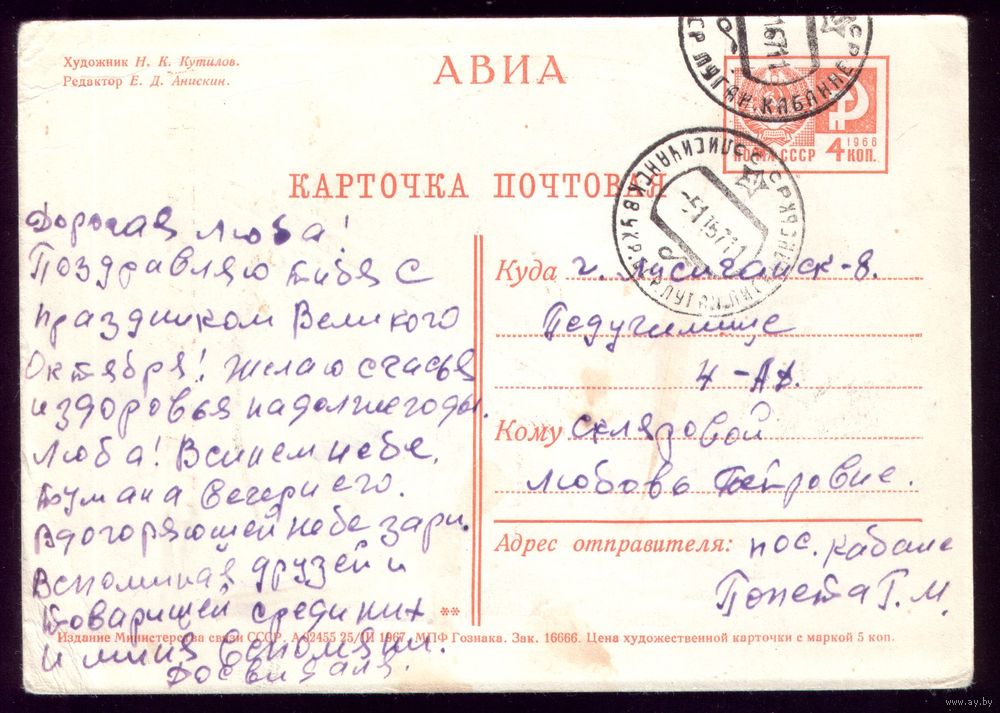 Художник Н. К. Кутилов.
Редактор Е. Д. Анискин.
АВИА
ПОЧТА СССР
4 КОП.
1966
КАРТОЧКА ПОЧТОВАЯ
Дорогая Люба!
Поздравляю тибя с
праздником Великого
Октября! Желаю счасья
и здоровья на долгие годы.
Люба! В синем небе,
тумана вечернего.
В догоряющей небе зари.
Вспоминая друзей и
товарищей среди них
и миня вспомяни.
Досвидания.
Куда г. Лисичанск-8.
Педучилище
4-А
Кому Скляровой
Любовь Петровне.
Адрес отправителя: пос. Кабане
Г. М.
**
Издание Министерства связи СССР. А 02455 25/III 1967. МПФ Гознака. Зак. 16666. Цена художественной карточки с маркой 5 коп.
www.ay.by